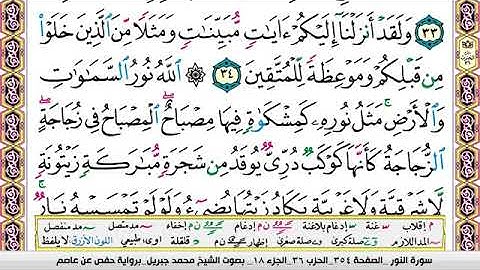 ٣٣ وَلَقَدْ أَنزَلْنَا إِلَيْكُمْ ءَايَـٰتٍ مُّبَيِّنَـٰتٍ وَمَثَلًا مِّنَ ٱلَّذِينَ خَلَوْا۟
مِن قَبْلِكُمْ وَمَوْعِظَةً لِّلْمُتَّقِينَ ٣٤ ۞ ٱللَّهُ نُورُ ٱلسَّمَـٰوَٰتِ
وَٱلْأَرْضِ ۚ مَثَلُ نُورِهِۦ كَمِشْكَوٰةٍ فِيهَا مِصْبَاحٌ ۖ ٱلْمِصْبَاحُ فِى زُجَاجَةٍ ۖ
ٱلزُّجَاجَةُ كَأَنَّهَا كَوْكَبٌ دُرِّىٌّ يُوقَدُ مِن شَجَرَةٍ مُّبَـٰرَكَةٍ زَيْتُونَةٍ
لَّا شَرْقِيَّةٍ وَلَا غَرْبِيَّةٍ يَكَادُ زَيْتُهَا يُضِىٓءُ وَلَوْ لَمْ تَمْسَسْهُ نَارٌ ۚ
م إقلاب غنة إدغام بلاغنة إدغام ن م إخفاء مد متصل مد منفصل
صلة كبرى صلة صغرى إظهار ن م قلقلة اوى طبيعي اللون الأزرق لا يلفظ
سورة النور _الصفحة ٣٥٤_ الحزب ٣٦_ الجزء ١٨_ بصوت الشيخ محمد جبريل_ برواية حفص عن عاصم